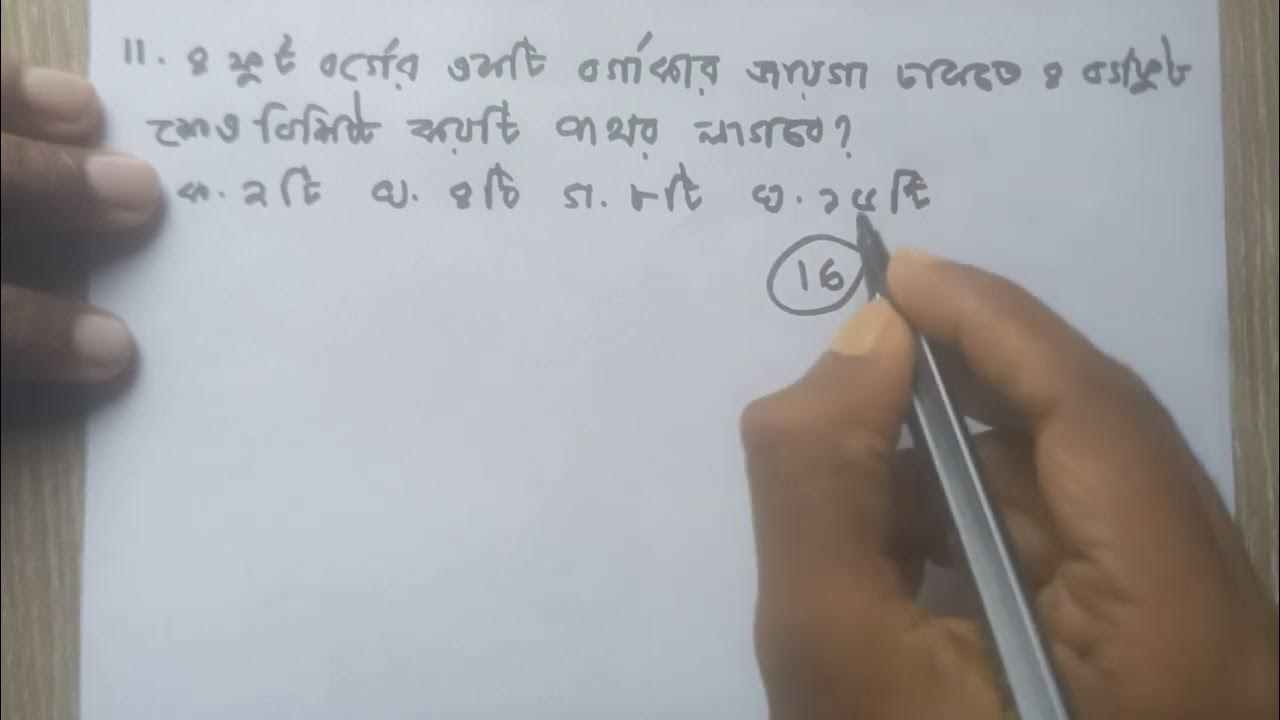 11. ৪ ফুট বর্গের একটি বর্গাকার জায়গা ঢাকতে ৪ বর্গফুট
ক্ষেত্র বিশিষ্ট কয়টি পাথর লাগবে?
ক. ২টি খ. ৪টি গ. ৮টি ঘ. ১৬টি
16